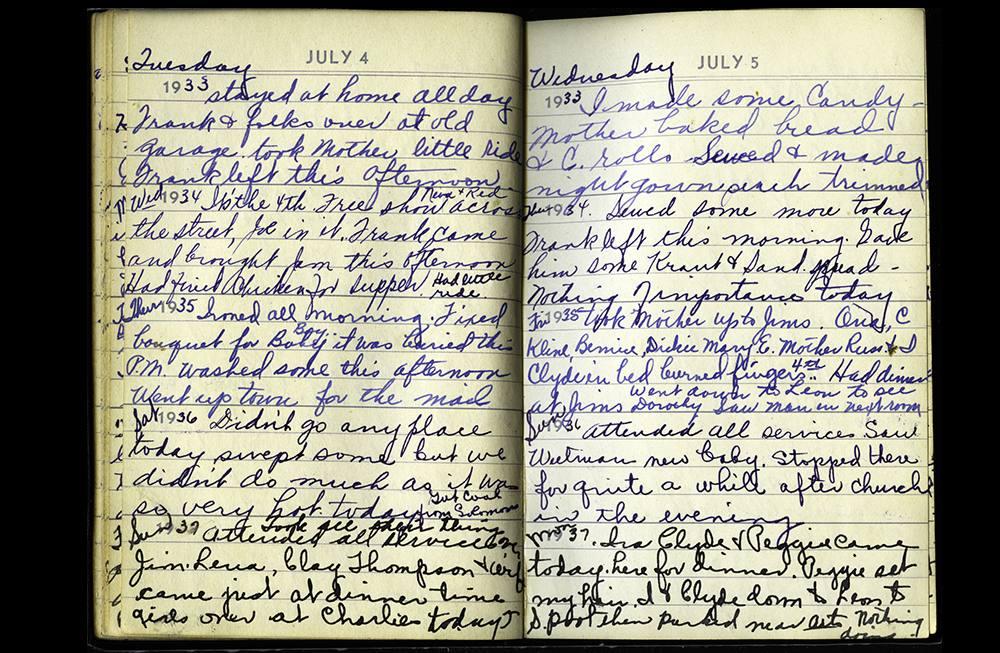 Tuesday JULY 4
1933 stayed at home all day
Frank & folks over at old
garage, took Mother little ride
Frank left this afternoon
Wed 1934 It's the 4th Free show across
the street, Joe in it. Frank came
and brought jam this afternoon
Had Fried Chicken for supper Had little
ride.
Thur 1935 Ironed all morning. Fixed
bouquet for Baby Boy it was buried this
P.M. washed some this afternoon
Went up town for the mail
Sat 1936 Didn't go any place
today swept some but we
didn't do much as it was
so very hot today. Got Coal
from Solomon
Sun 1937 Attended all services
Jim. Lena, Clay Thompson & wife
came just at dinner time
girls over at Charlies today
Wednesday JULY 5
1933 I made some Candy -
Mother baked bread
& C. rolls Sewed & made
night gown peach trimmed
Thur 1934. Sewed some more today
Frank left this morning. Gave
him some Kraut & Sand. spread -
Nothing of importance today
Fri 1935 took Mother up to Jims. C
Kline, Bernice, Dickie Mary E. Mother Russ & I
Clyde in bed burned fingers 4th Had dinner
at Jims Went down to Leon to see
Dorothy Saw man in next room
Sun 1936 Attended all services Saw
new baby. Stopped there
for quite a while after church
in the evening
Mon 1937. Ira Clyde & Peggie came
today. here for dinner. Peggie set
my hair. I & Clyde down to Leon to
Spot then parked near Nothing
doing.